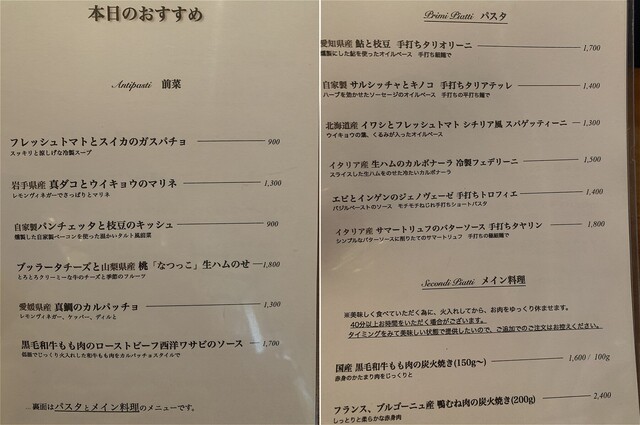 本日のおすすめ
Antipasti 前菜
フレッシュトマトとスイカのガスパチョ 900
スッキリと涼しげな冷製スープ
岩手県産 真ダコとウイキョウのマリネ 1,300
レモンヴィネガーでさっぱりとマリネ
自家製パンチェッタと枝豆のキッシュ 900
燻製した自家製ベーコンを使った温かいタルト風前菜
ブッラータチーズと山梨県産 桃「なつっこ」生ハムのせ 1,800
とろとろクリーミーな牛のチーズと季節のフルーツ
愛媛県産 真鯛のカルパッチョ 1,300
レモンヴィネガー、ケッパー、ディルと
黒毛和牛もも肉のローストビーフ西洋ワサビのソース 1,700
低温でじっくり火入れした和牛もも肉をカルパッチョスタイルで
…裏面はパスタとメイン料理のメニューです。
Primi Piatti パスタ
愛知県産 鮎と枝豆 手打ちタリオリーニ 1,700
燻製にした鮎を使ったオイルベース 手打ち細麺で
自家製 サルシッチャとキノコ 手打ちタリアテッレ 1,400
ハーブを効かせたソーセージのオイルベース 手打ちの平打ち麺で
北海道産 イワシとフレッシュトマト シチリア風 スパゲッティーニ 1,300
ウイキョウの葉、くるみが入ったオイルベース
イタリア産 生ハムのカルボナーラ 冷製フェデリーニ 1,500
スライスした生ハムをのせた冷たいカルボナーラ
エビとインゲンのジェノヴェーゼ 手打ちトロフィエ 1,400
バジルペーストのソース モチモチねじれ手打ちショートパスタ
イタリア産 サマートリュフのバターソース 手打ちタヤリン 1,800
シンプルなバターソースに削りたてのサマートリュフ 手打ちの極細麺で
Secondi Piatti メイン料理
※美味しく食べていただく為に、火入れしてから、お肉をゆっくり休ませます。
40分以上お時間をいただく場合がございます。
タイミングをみて美味しい状態で提供したいので、ご追加でのご注文はお控えください。
国産 黒毛和牛もも肉の炭火焼き(150g〜) 1,600 / 100g
赤身のかたまり肉をじっくりと
フランス、ブルゴーニュ産 鴨むね肉の炭火焼き(200g) 2,400
しっとりと柔らかな赤身肉